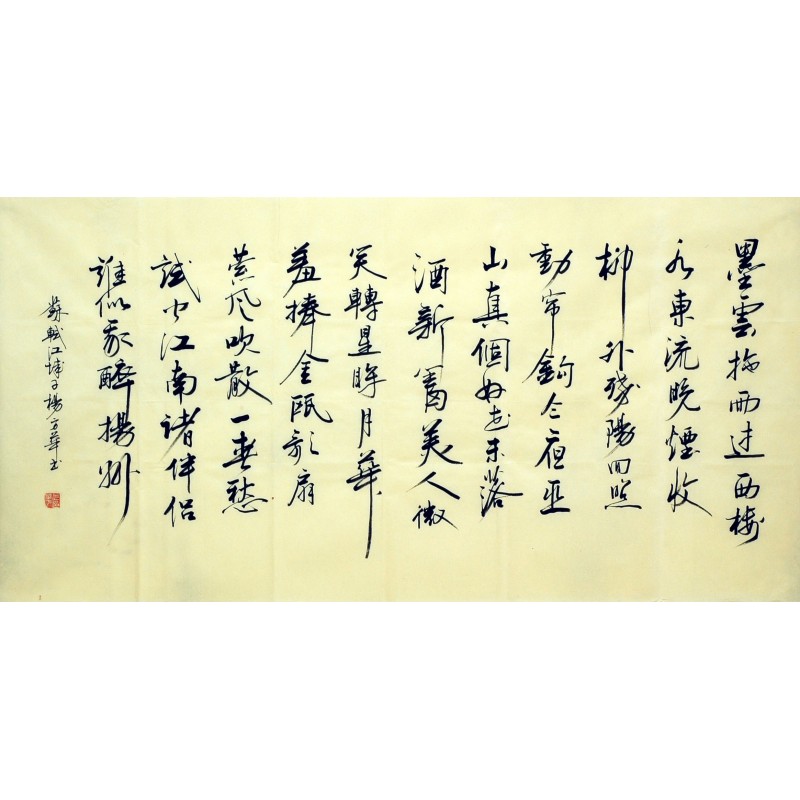 墨雲拖雨过西樓
水東流晚煙收
柳外殘陽回照
動帘鉤今夜巫
山真個好花未落
酒新篘美人微
笑轉星眸月華
羞捧金甌歌扇
萦风吹散一春愁
試问江南諸伴侶
誰似我醉揚州
蘇軾江城子楊方華书